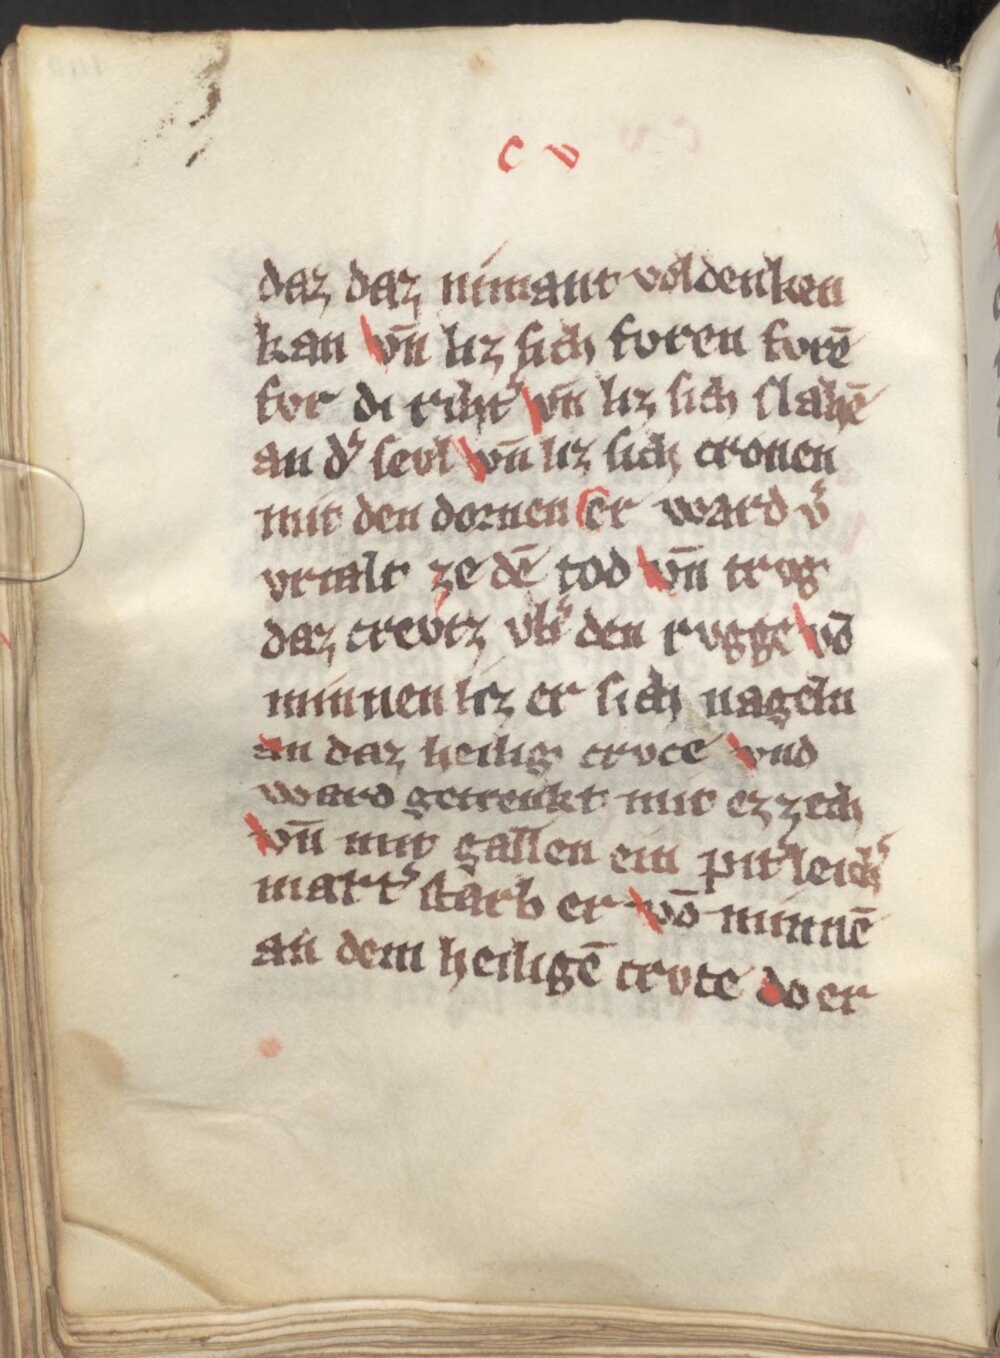 c v
daz daz nimant voldenken
kan vn̄ liz sich furen furē
fur di riht᷑ vn̄ liz sich slahē
an d᷑ sevl vn̄ liz sich cronen
mit den dornen Er ward v᷑
vrtalt ze dē tod vn̄ trvg
daz crevtz vb᷑ den rvgge vō
minnen liz er sich nageln
an daz heilig crvce vnd
ward getrenkt mit ezzech
vn̄ mit gallen ein pit᷑leich᷑
mart᷑ starb er vō minnē
an dem heiligē crvce do er